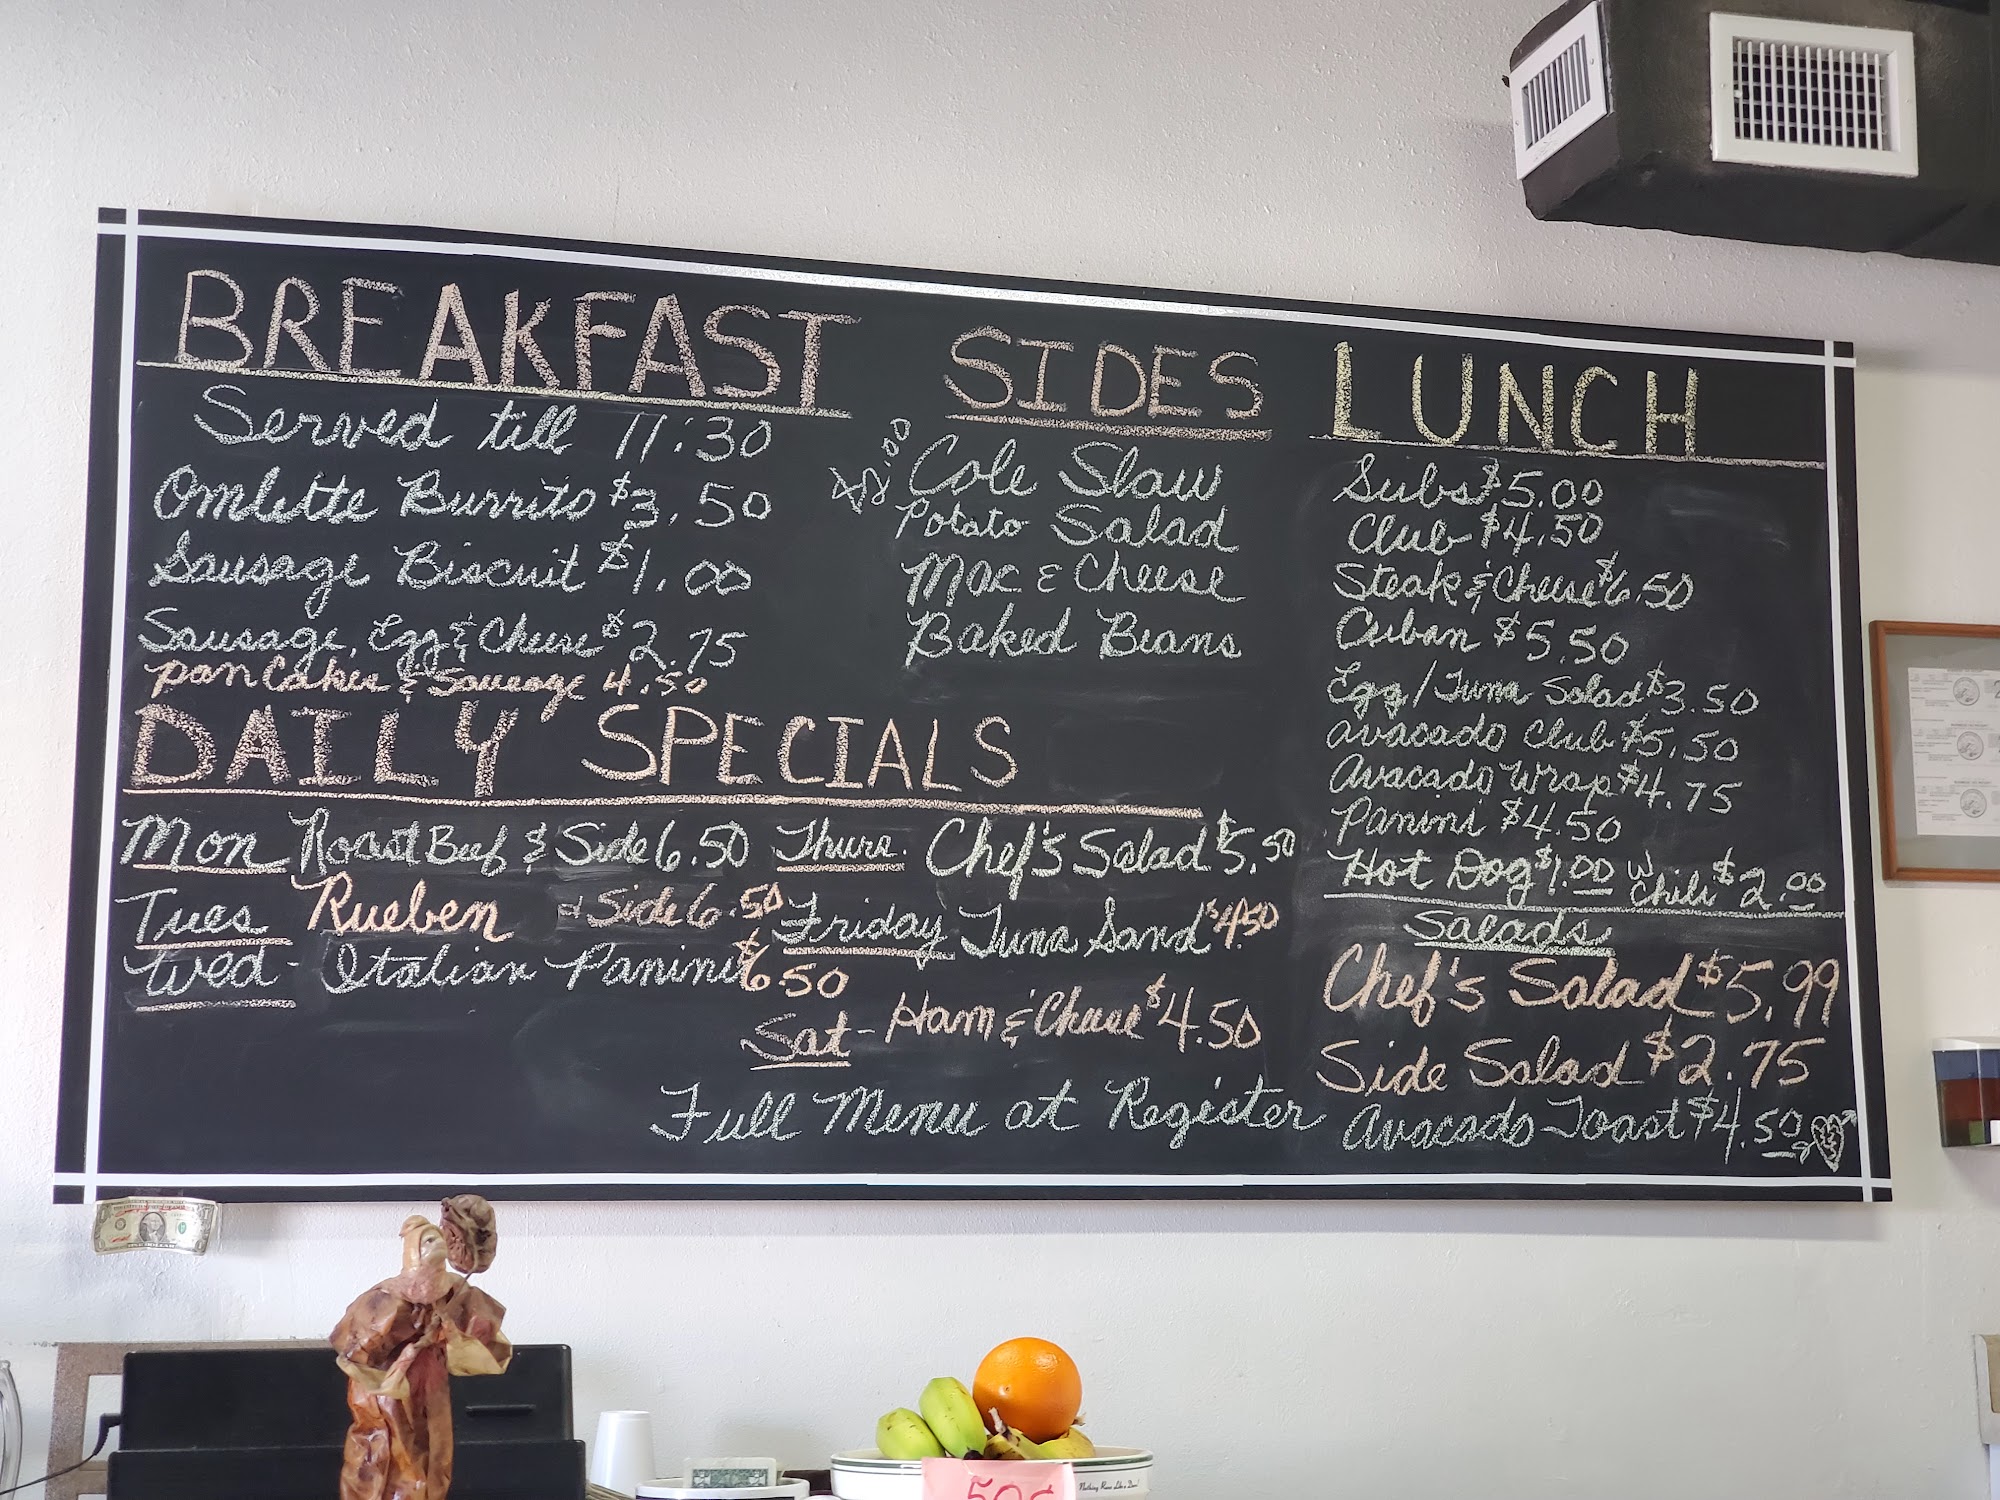 BREAKFAST
Served till 11:30
Omlette Burrito $3.50
Sausage Biscuit $1.00
Sausage, Egg & Cheese $2.75
pancakes & Sausage 4.50
SIDES
Cole Slaw
Potato Salad
Mac & Cheese
Baked Beans
LUNCH
Subs $5.00
Club $4.50
Steak & Cheese $6.50
Cuban $5.50
Egg/Tuna Salad $3.50
Avacado Club $5.50
Avacado Wrap $4.75
Panini $4.50
Hot Dog $1.00 w Chili $2.00
Salads
Chef's Salad $5.99
Side Salad $2.75
Avacado Toast $4.50
DAILY SPECIALS
Mon Roast Beef & Side 6.50
Tues Rueben & Side 6.50
Wed - Italian Panini $6.50
Thurs. Chef's Salad $5.50
Friday Tuna Sand $4.50
Sat - Ham & Cheese $4.50
Full Menu at Register
50¢